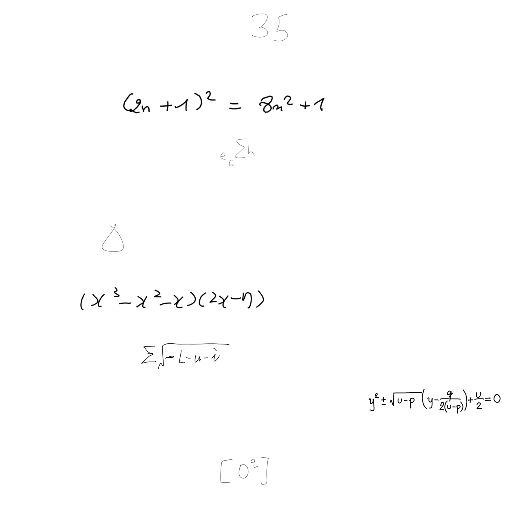 35
(2n+1)² = 8n²+1
Δ
(x³-x²-x)(2x-η)
y² ± √(u-p) (y - q/(2(u-p))) + u/2 = 0
[0°]